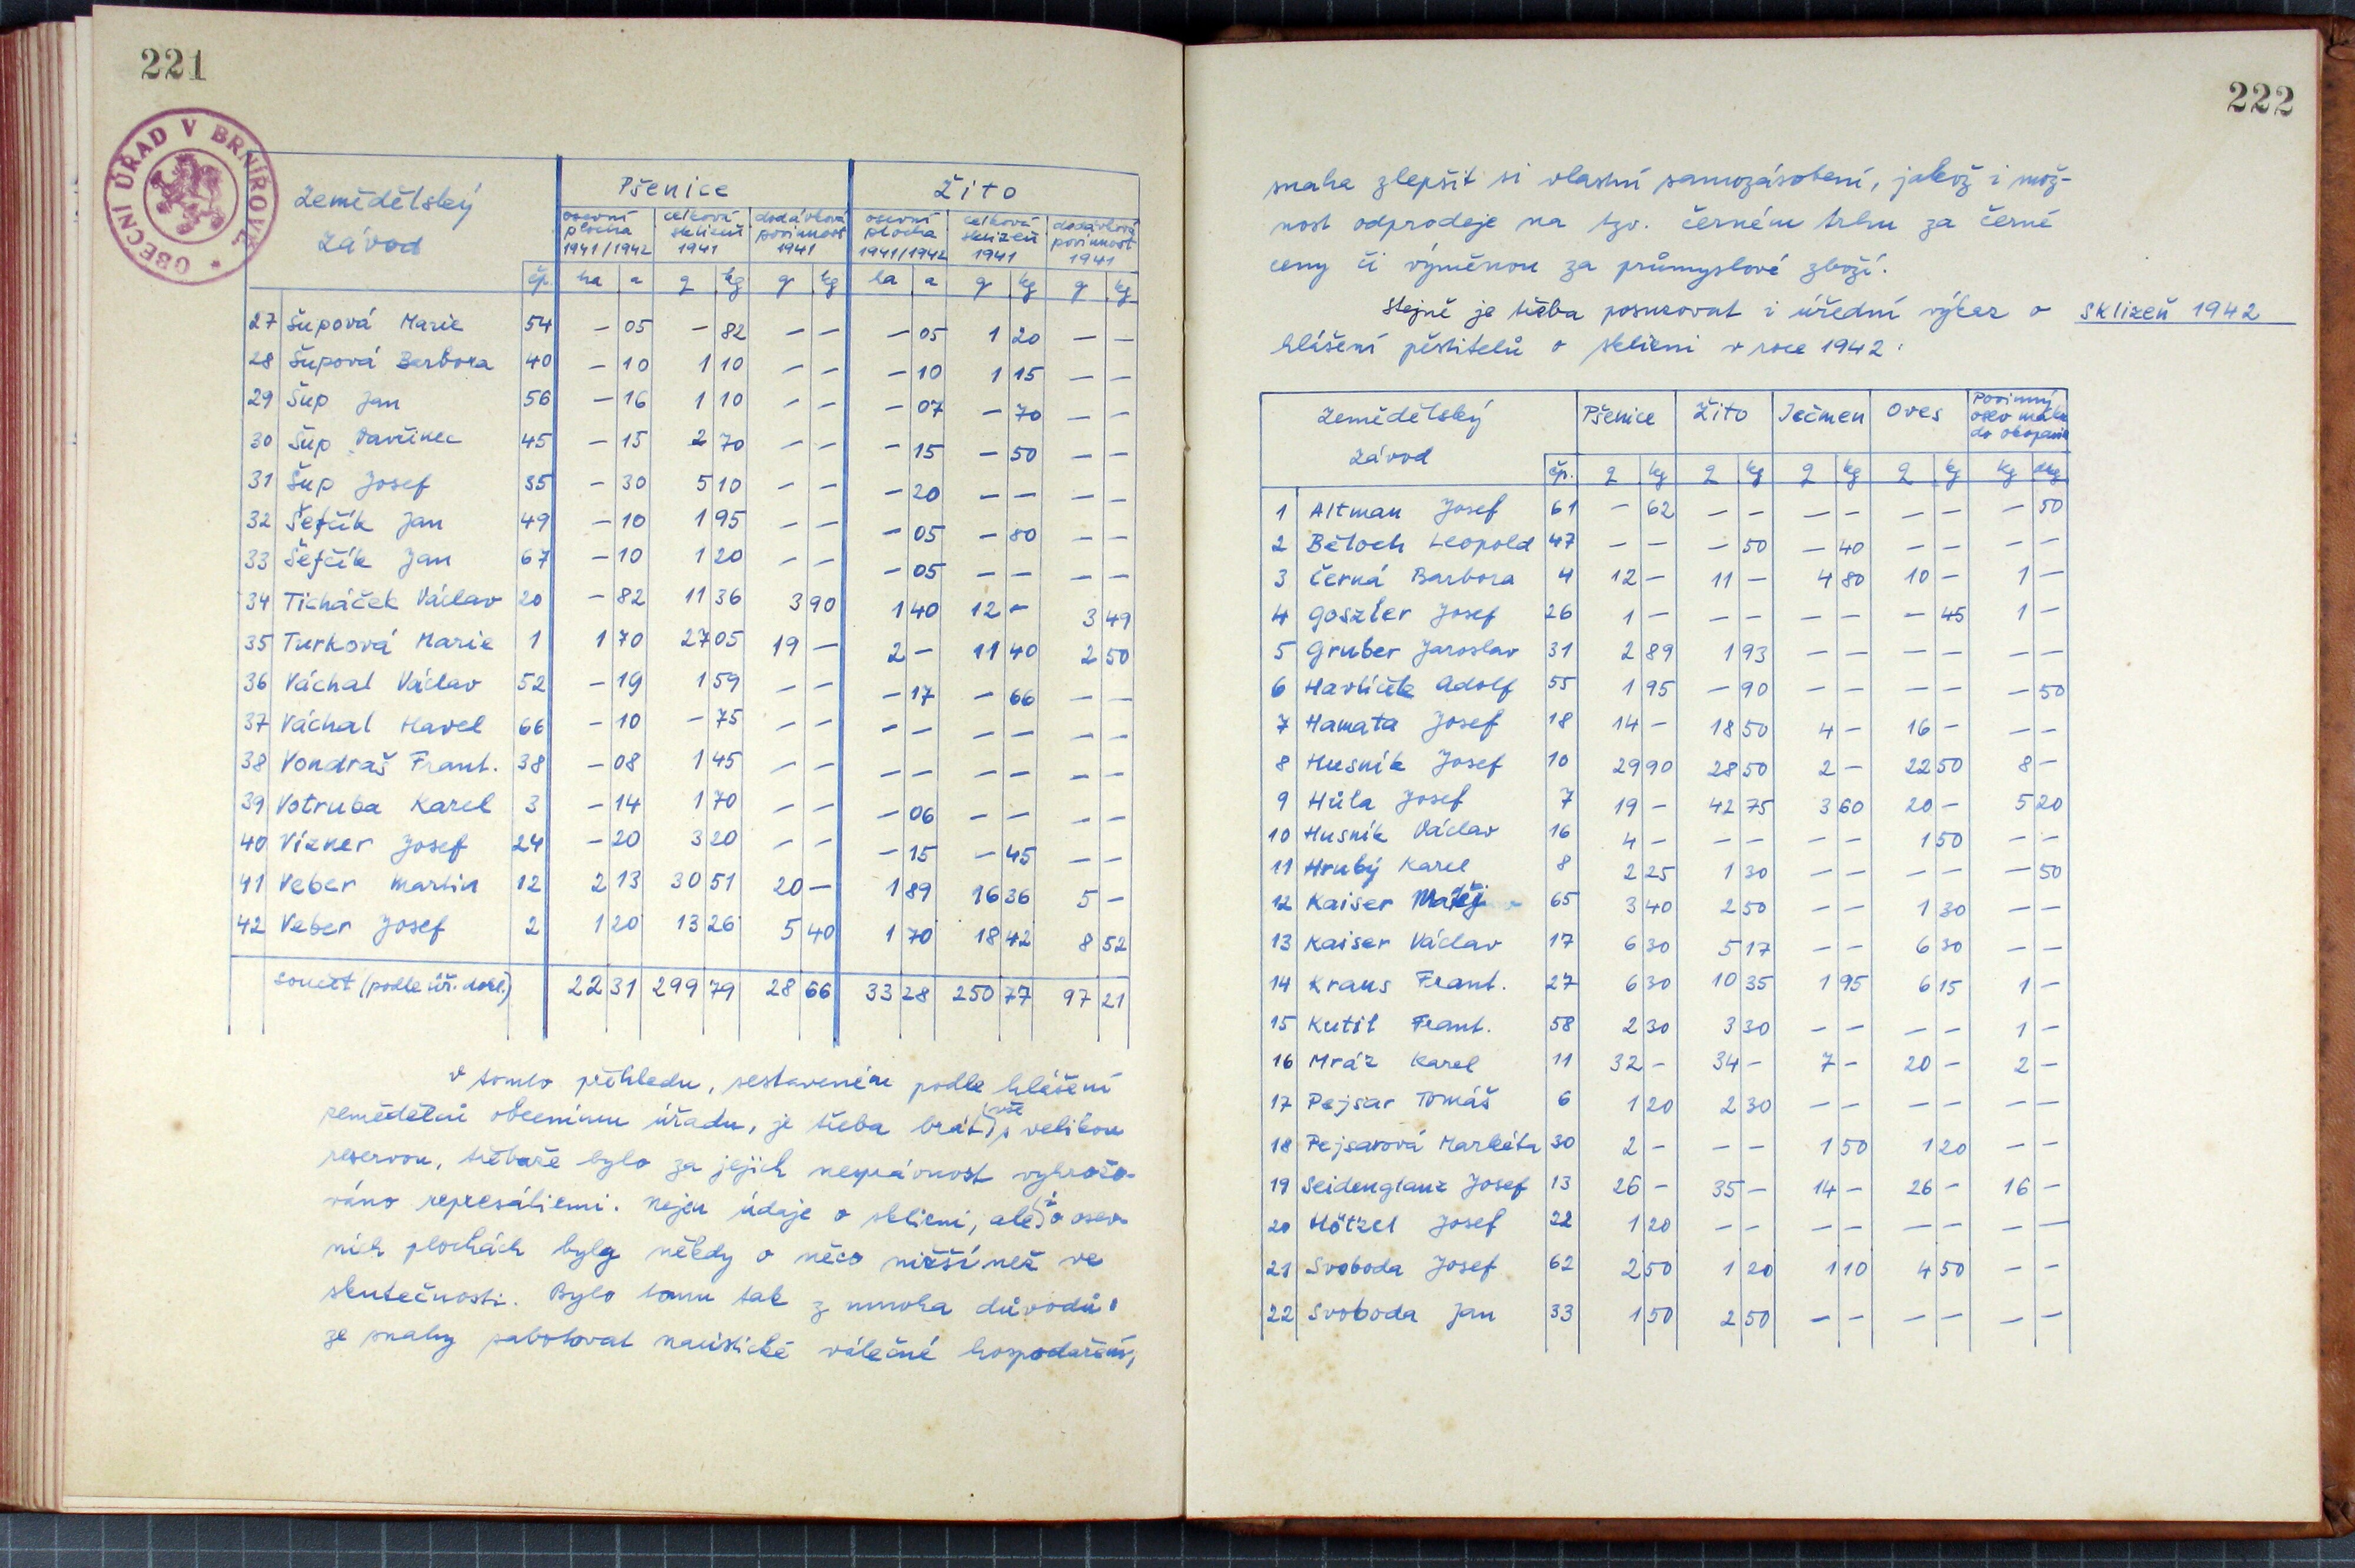 221
OBECNÍ ÚŘAD V BRNÍŘOVĚ *
Zemědělský závod | Pšenice | Žito
osevní plocha 1941/1942 | celková sklizeň 1941 | dodávková povinnost 1941 | osevní plocha 1941/1942 | celková sklizeň 1941 | dodávková povinnost 1941
čp. | ha | a | q | kg | q | kg | ha | a | q | kg | q | kg
27 Šupová Marie 54 – 05 – 82 – – – 05 1 20 – –
28 Šupová Barbora 40 – 10 1 10 – – – 10 1 15 – –
29 Šup Jan 56 – 16 1 10 – – – 07 – 70 – –
30 Šup Vavřinec 45 – 15 2 70 – – – 15 – 50 – –
31 Šup Josef 35 – 30 5 10 – – – 20 – – – –
32 Šefčík Jan 49 – 10 1 95 – – – 05 – 80 – –
33 Šefčík Jan 67 – 10 1 20 – – – 05 – – – –
34 Ticháček Václav 20 – 82 11 36 3 90 1 40 12 – 3 49
35 Turková Marie 1 1 70 27 05 19 – 2 – 11 40 2 50
36 Váchal Václav 52 – 19 1 59 – – – 17 – 66 – –
37 Váchal Havel 66 – 10 – 75 – – – – – – – –
38 Vondraš Frant. 38 – 08 1 45 – – – – – – – –
39 Votruba Karel 3 – 14 1 70 – – – 06 – – – –
40 Vízner Josef 24 – 20 3 20 – – – 15 – 45 – –
41 Veber Martin 12 2 13 30 51 20 – 1 89 16 36 5 –
42 Veber Josef 2 1 20 13 26 5 40 1 70 18 42 8 52
Součet (podle úř. dokl.) 22 31 299 79 28 66 33 28 250 77 97 21
V tomto přehledu, sestaveném podle hlášení
zemědělců obecnímu úřadu, je třeba brát vše s velikou
reservou, třebaže bylo za jejich nesprávnost vyhrožo-
váno represáliemi. Nejen údaje o sklizni, ale i o osev-
ních plochách byly někdy o něco nižší než ve
skutečnosti. Bylo tomu tak z mnoha důvodů:
ze snahy sabotovat nacistické válečné hospodaření,
222
snaha zlepšit si vlastní samozásobení, jakož i mož-
nost odprodeje na tzv. černém trhu za černé
ceny či výměnou za průmyslové zboží.
Stejně je třeba posuzovat i úřední výkaz o
Sklizeň 1942
hlášení pěstitelů o sklizni v roce 1942:
Zemědělský závod | Pšenice | Žito | Ječmen | Oves | Povinný osev máku do okopanin
čp. | q | kg | q | kg | q | kg | q | kg | kg | dkg
1 Altman Josef 61 – 62 – – – – – – – 50
2 Běloch Leopold 47 – – – 50 – 40 – – – –
3 Černá Barbora 4 12 – 11 – 4 80 10 – 1 –
4 Goszler Josef 26 1 – – – – – – 45 1 –
5 Gruber Jaroslav 31 2 89 1 93 – – – – – –
6 Havlíček Adolf 55 1 95 – 90 – – – – – 50
7 Hamata Josef 18 14 – 18 50 4 – 16 – – –
8 Husník Josef 10 29 90 28 50 2 – 22 50 8 –
9 Hůla Josef 7 19 – 42 75 3 60 20 – 5 20
10 Husník Václav 16 4 – – – – – 1 50 – –
11 Hrubý Karel 8 2 25 1 30 – – – – – 50
12 Kaiser Matěj 65 3 40 2 50 – – 1 30 – –
13 Kaiser Václav 17 6 30 5 17 – – 6 30 – –
14 Kraus Frant. 27 6 30 10 35 1 95 6 15 1 –
15 Kutil Frant. 58 2 30 3 30 – – – – 1 –
16 Mráz Karel 11 32 – 34 – 7 – 20 – 2 –
17 Pejsar Tomáš 6 1 20 2 30 – – – – – –
18 Pejsarová Markéta 30 2 – – – 1 50 1 20 – –
19 Seidenglanz Josef 13 26 – 35 – 14 – 26 – 16 –
20 Hötzel Josef 22 1 20 – – – – – – – –
21 Svoboda Josef 62 2 50 1 20 1 10 4 50 – –
22 Svoboda Jan 33 1 50 2 50 – – – – – –